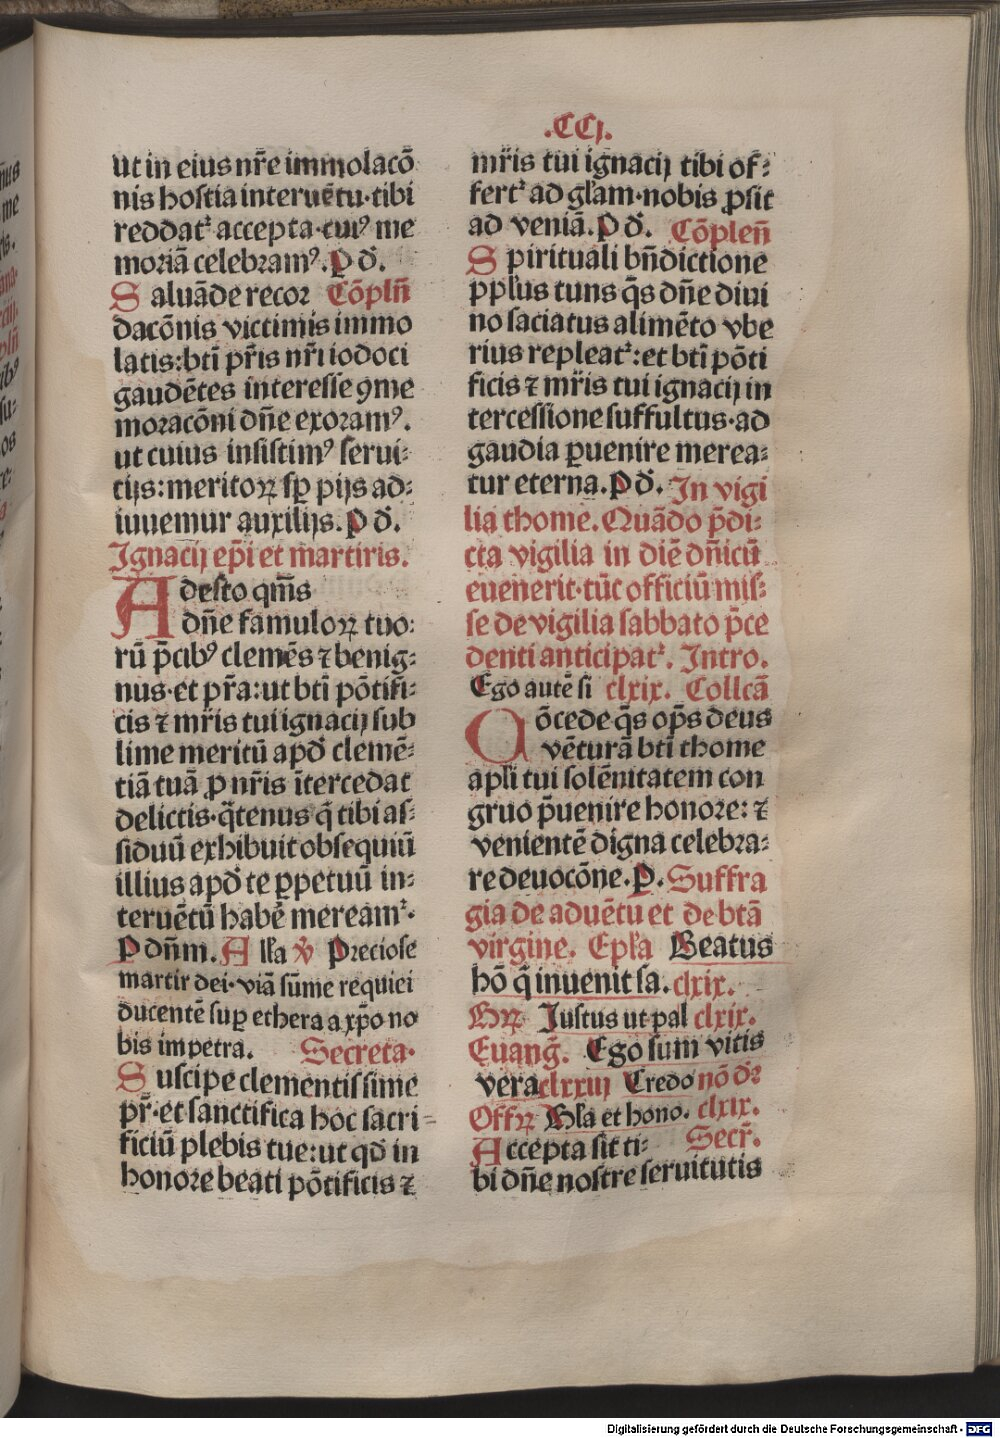 .CCI.
ut in eius nr̄e immolacō
nis hostia interuētu·tibi
reddatᷣ accepta·tuiꝰ me
moriā celebramꝰ. P d̄.
Saluāde recor Cōpln̄
dacōnis victimis immo
latis: btī pr̄is nr̄i iodoci
gaudētes interesse ꝯme
moracōni dn̄e exoramꝰ.
ut cuius insistimꝰ serui-
tijs: meritoꝝ sꝑ pijs ad-
iuuemur auxilijs. P d̄.
Ignacij ep̄i et martiris.
Adesto qm̄s
dn̄e famuloꝝ tuo-
rū p̄cibꝰ clemēs ⁊ benig-
nus·et pr̄a: ut btī pōtifi-
cis ⁊ mr̄is tui ignacij sub
lime meritū apd̄ clemē-
tiā tuā ꝓ nr̄is ītercedat
delictis·q̄tenus q̄ tibi as-
siduū exhibuit obsequiū
illius apd̄ te ꝑpetuū in-
teruētū habē meream̄ᷣ.
P dn̄m. Alla ꝟ Preciose
martir dei·viā sūme requiei
ducentē suꝑ ethera a xp̄o no
bis impetra. Secreta.
Suscipe clementissime
pr̄·et sanctifica hoc sacri-
ficiū plebis tue: ut qd̄ in
honore beati pōtificis ⁊
mr̄is tui ignacij tibi of-
fertᷣ ad gl̄am·nobis ꝓsit
ad veniā. P d̄. Cōplen̄
Spirituali bn̄dictione
pplus tuns q̄s dn̄e diui
no saciatus alimēto vbe
rius repleatᷣ: et btī pōti
ficis ⁊ mr̄is tui ignacij in
tercessione suffultus·ad
gaudia ꝑuenire merea-
tur eterna. P d̄. In vigi
lia thome. Quādo p̄di-
cta vigilia in diē dn̄icū
euenerit·tūc officiū mis-
se de vigilia sabbato p̄ce
denti anticipatᷣ. Intro.
Ego autē si clxix. Collcā
Cōcede q̄s op̄s deus
vēturā btī thome
apli tui solēnitatem con
gruo p̄uenire honore: ⁊
venientē digna celebra-
re deuocōne. P. Suffra
gia de aduētu et de btā
virgine. Epl̄a Beatus
hō q̄ inuenit sa. clxix.
Grꝝ Justus ut pal clxix.
Euanḡ. Ego sum vitis
vera clxxiij Credo nō dr̄
Offrꝝ Gl̄a et hono. clxix.
Accepta sit ti- Secr̄.
bi dn̄e nostre seruitutis
Digitalisierung gefördert durch die Deutsche Forschungsgemeinschaft - DFG